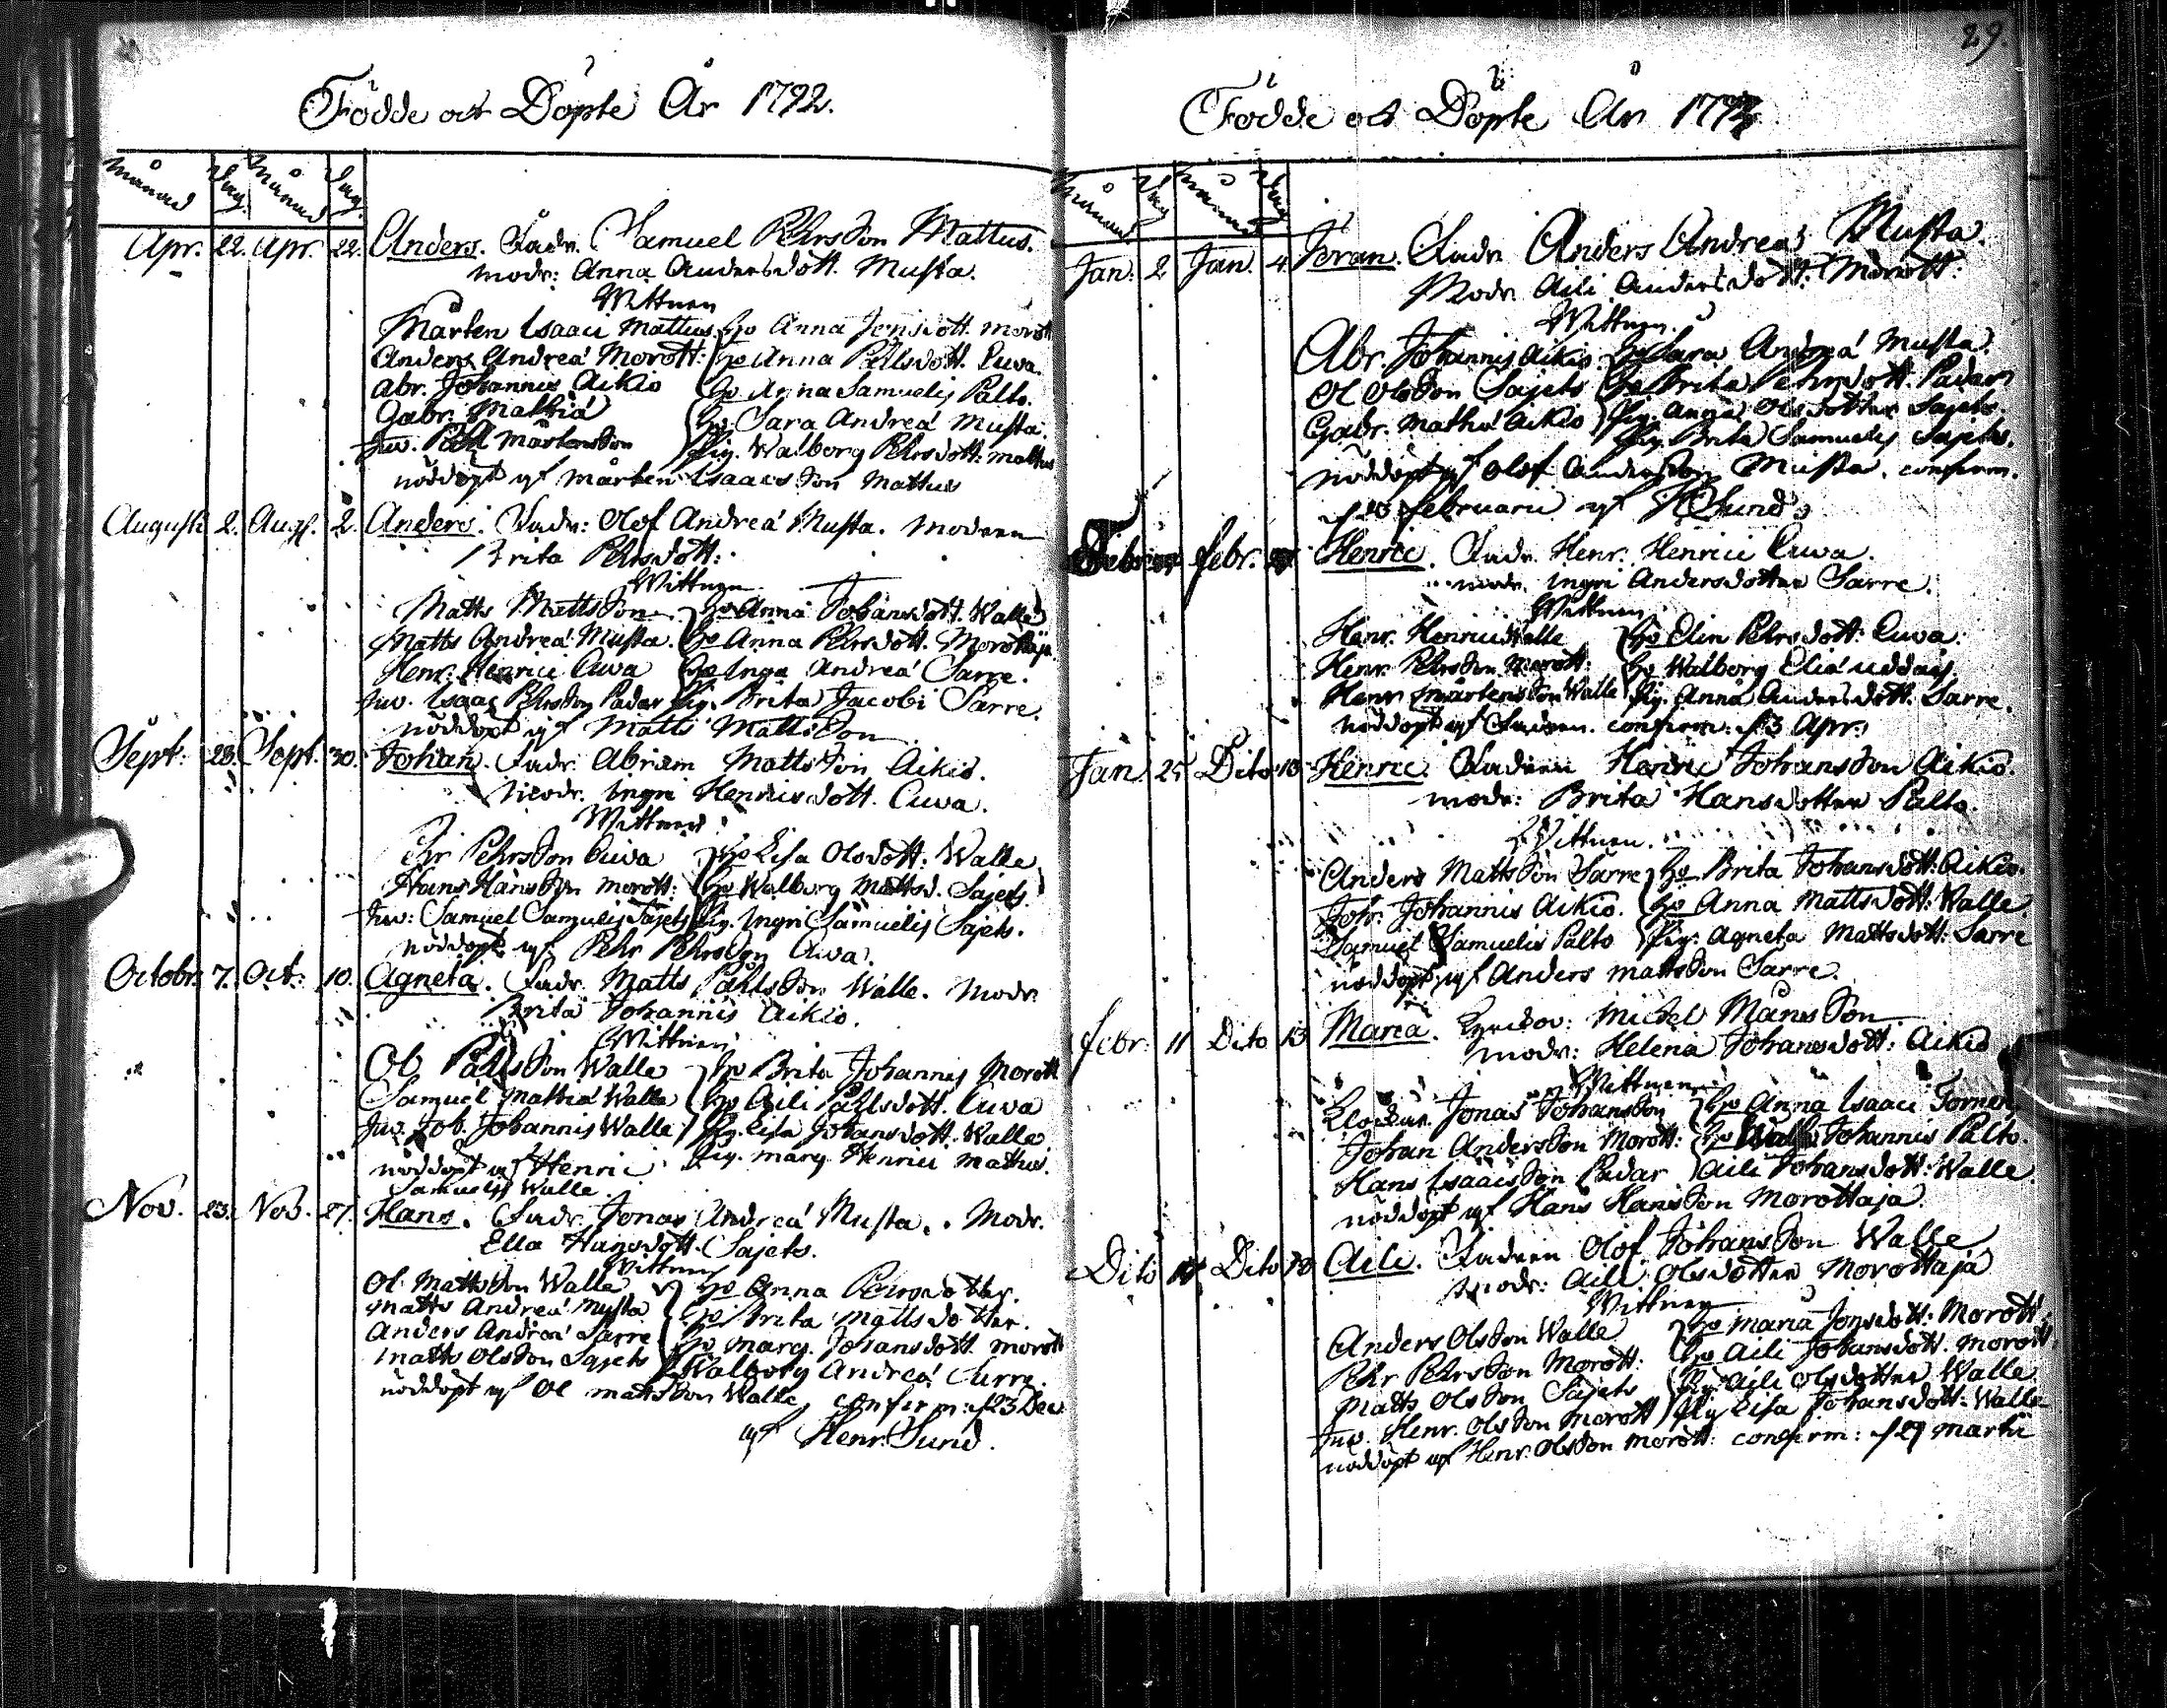 Födde och Döpte År 1792.
Månad Dag. Månad Dag.
Apr. 22. Apr. 22. Anders. Fadr. Samuel Pehrsson Mattus.
modr: Anna Andersdott. Musta.
Wittnen
Mårten Isaaci Mattus Hu Anna Jonsdott. Morott
Anders Andreä Morott: Hu Anna Pehrsdott. Cuva.
Abr. Johannis Aikio Hu Anna Samuelis Palto.
Gabr. Mathiä Hu Sara Andreä Musta.
Påhl Mårtensson Pig. Walborg Pehrsdott: Mattus
nöddöpt af Mårten Isaacsson Mattus
Augusti 2. Aug. 2. Anders. Fadr: Olof Andreä Musta. Modren
Brita Pehrsdott:
Wittnen
Matts Mattsson Hu Anna Johansdott. Walle
Matts Andreä Musta. Hu Anna Pehrsdott. Morottaja.
Henr: Henrici Cuva Hu Inga Andreä Sarre.
Isaac Pehrsson Padar Pig. Brita Jacobi Sarre.
nöddöpt af Matts Mattsson
Sept: 28. Sept. 30. Johan. Fadr. Abram Mattsson Aikio.
Modr. Ingri Henricsdott. Cuva.
Wittnen
Pehrsson Cuva Hu Lisa Olsdott. Walle
Hans Hansson Morott: Hu Walborg Mattsd. Sajets
Samuel Samuelis Sajets Pig. Ingri Samuelis Sajets.
nöddöpt af Pehr Pehrsson Cuva.
Octobr: 7. Oct: 10. Agneta. Fadr. Matts Påhlsson Walle. Modr.
Brita Johannis Aikio.
Wittnen
Ol. Påhlsson Walle Hu Brita Johannis Morott
Samuel Mathiä Walle Hu Aili Påhlsdott. Cuva
Joh. Johannis Walle Pig. Lisa Johansdott. Walle
nöddöpt af Henric Pig. Marg. Henrici Mattus.
Samuelis Walle.
Nov. 23. Nov. 27. Hans. Fadr. Jonas Andreä Musta. Modr.
Ella Hansdott. Sajets.
Wittnen
Ol. Mattsson Walle Hu Anna Pehrsdotter.
Matts Andreä Musta Hu Brita Mattsdotter.
Anders Andreä Sarre Hu Marg. Johansdott. Morott
Matts Olsson Sajets Walborg Andreä Sarre.
nöddöpt af Ol mattsson Walle, confirm: d 23 Dec
af Henr. Sund.
29.
Födde och Döpte År
Månad Dag Månad Dag
Jan. 2 Jan. 4. Fadr Anders Andreä Musta.
Modr. Aili Andersdott. Morott:
Wittnen.
Abr. Johannis Aikio Hu Sara Andreä Musta.
Ol Olsson Sajets Hu Brita Pehrsdott. Padar
Gabr. Mathiä Aikio Pig. Anna Olsdotter Sajets.
Pig. Brita Samuelis Sajets.
nöddöpt af Olof Andersson Musta. confirm.
februarii af H Sund
febr. Henric. Fadr. Henr. Henrici Cuva.
modr. Ingri Andersdotter Sarre.
Wittnen
Henr. Henrici Walle Hu Elin Pehrsdott: Cuva.
Henr Pehrsson Morott: Hu Walborg Eliä uddaig
Henr Mårtensson Walle Pig. Anna Andersdott. Sarre.
nöddöpt af Fadren. confirm: d 3 Apr:
Jan. 25 Dito 10 Henric. Fadren Henric Johansson Aikio.
modr: Brita Hansdotter Palto.
Wittnen.
Anders Mattsson Sarre Hu Brita Johansdott: Aikio.
Joh: Johannis Aikio. Hu Anna Mattsdott: Walle.
Samuel Samuelis Palto Pig: Agneta Mattsdott: Sarre
nöddöpt af Anders Mattsson Sarre.
febr: 11 Dito 13 Maria. Michel Månsson
modr: Helena Johansdott: Aikio
Wittnen
Klockar. Jonas Johansson Hu Anna Isaaci
Johan Andersson Morott: Hu Johannis Palto.
Hans Isaacsson Padar Aili Johansdott: Walle.
nöddöpt af Hans Hansson Morottaja.
Dito Dito Aili. Fadren Olof Johansson Walle
modr: Aili Olsdotter Morottaja
Wittnen
Anders Olsson Walle Hu Maria Jonsdott: Morott
Pehr Pehrsson Morott: Hu Aili Johansdott. Morott.
Matts Olsson Sajets Pig: Aili Olsdotter Walle
Henr. Olsson Morott Pig Lisa Johansdott. Walle
nöddöpt af Henr. Olsson Morott: confirm: d 29 Martii